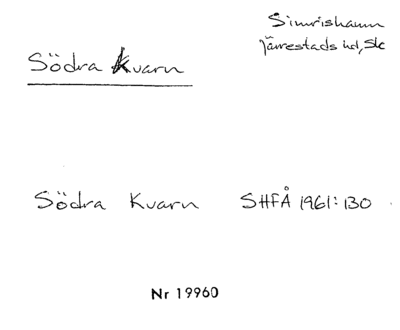 Simrishamn
Järrestads hd, Sk
Södra Kvarn
Södra Kvarn SHFÅ 1961:130
Nr 19960